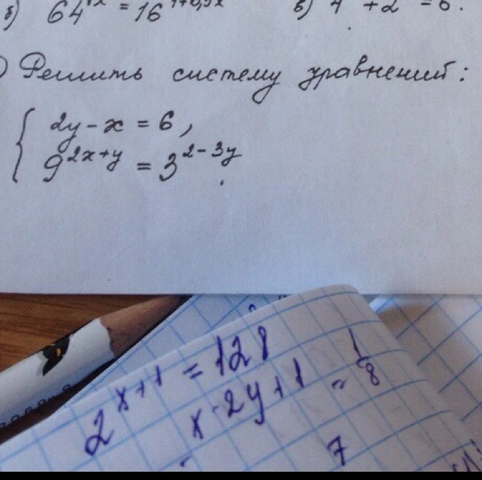 б) 64 = 16
в) 4 + 2 = 6.
Решить систему уравнений:
2y - x = 6,
9^{2x+y} = 3^{2-3y}.
2^{x+1} = 128
x-2y+1 = 1/8
7